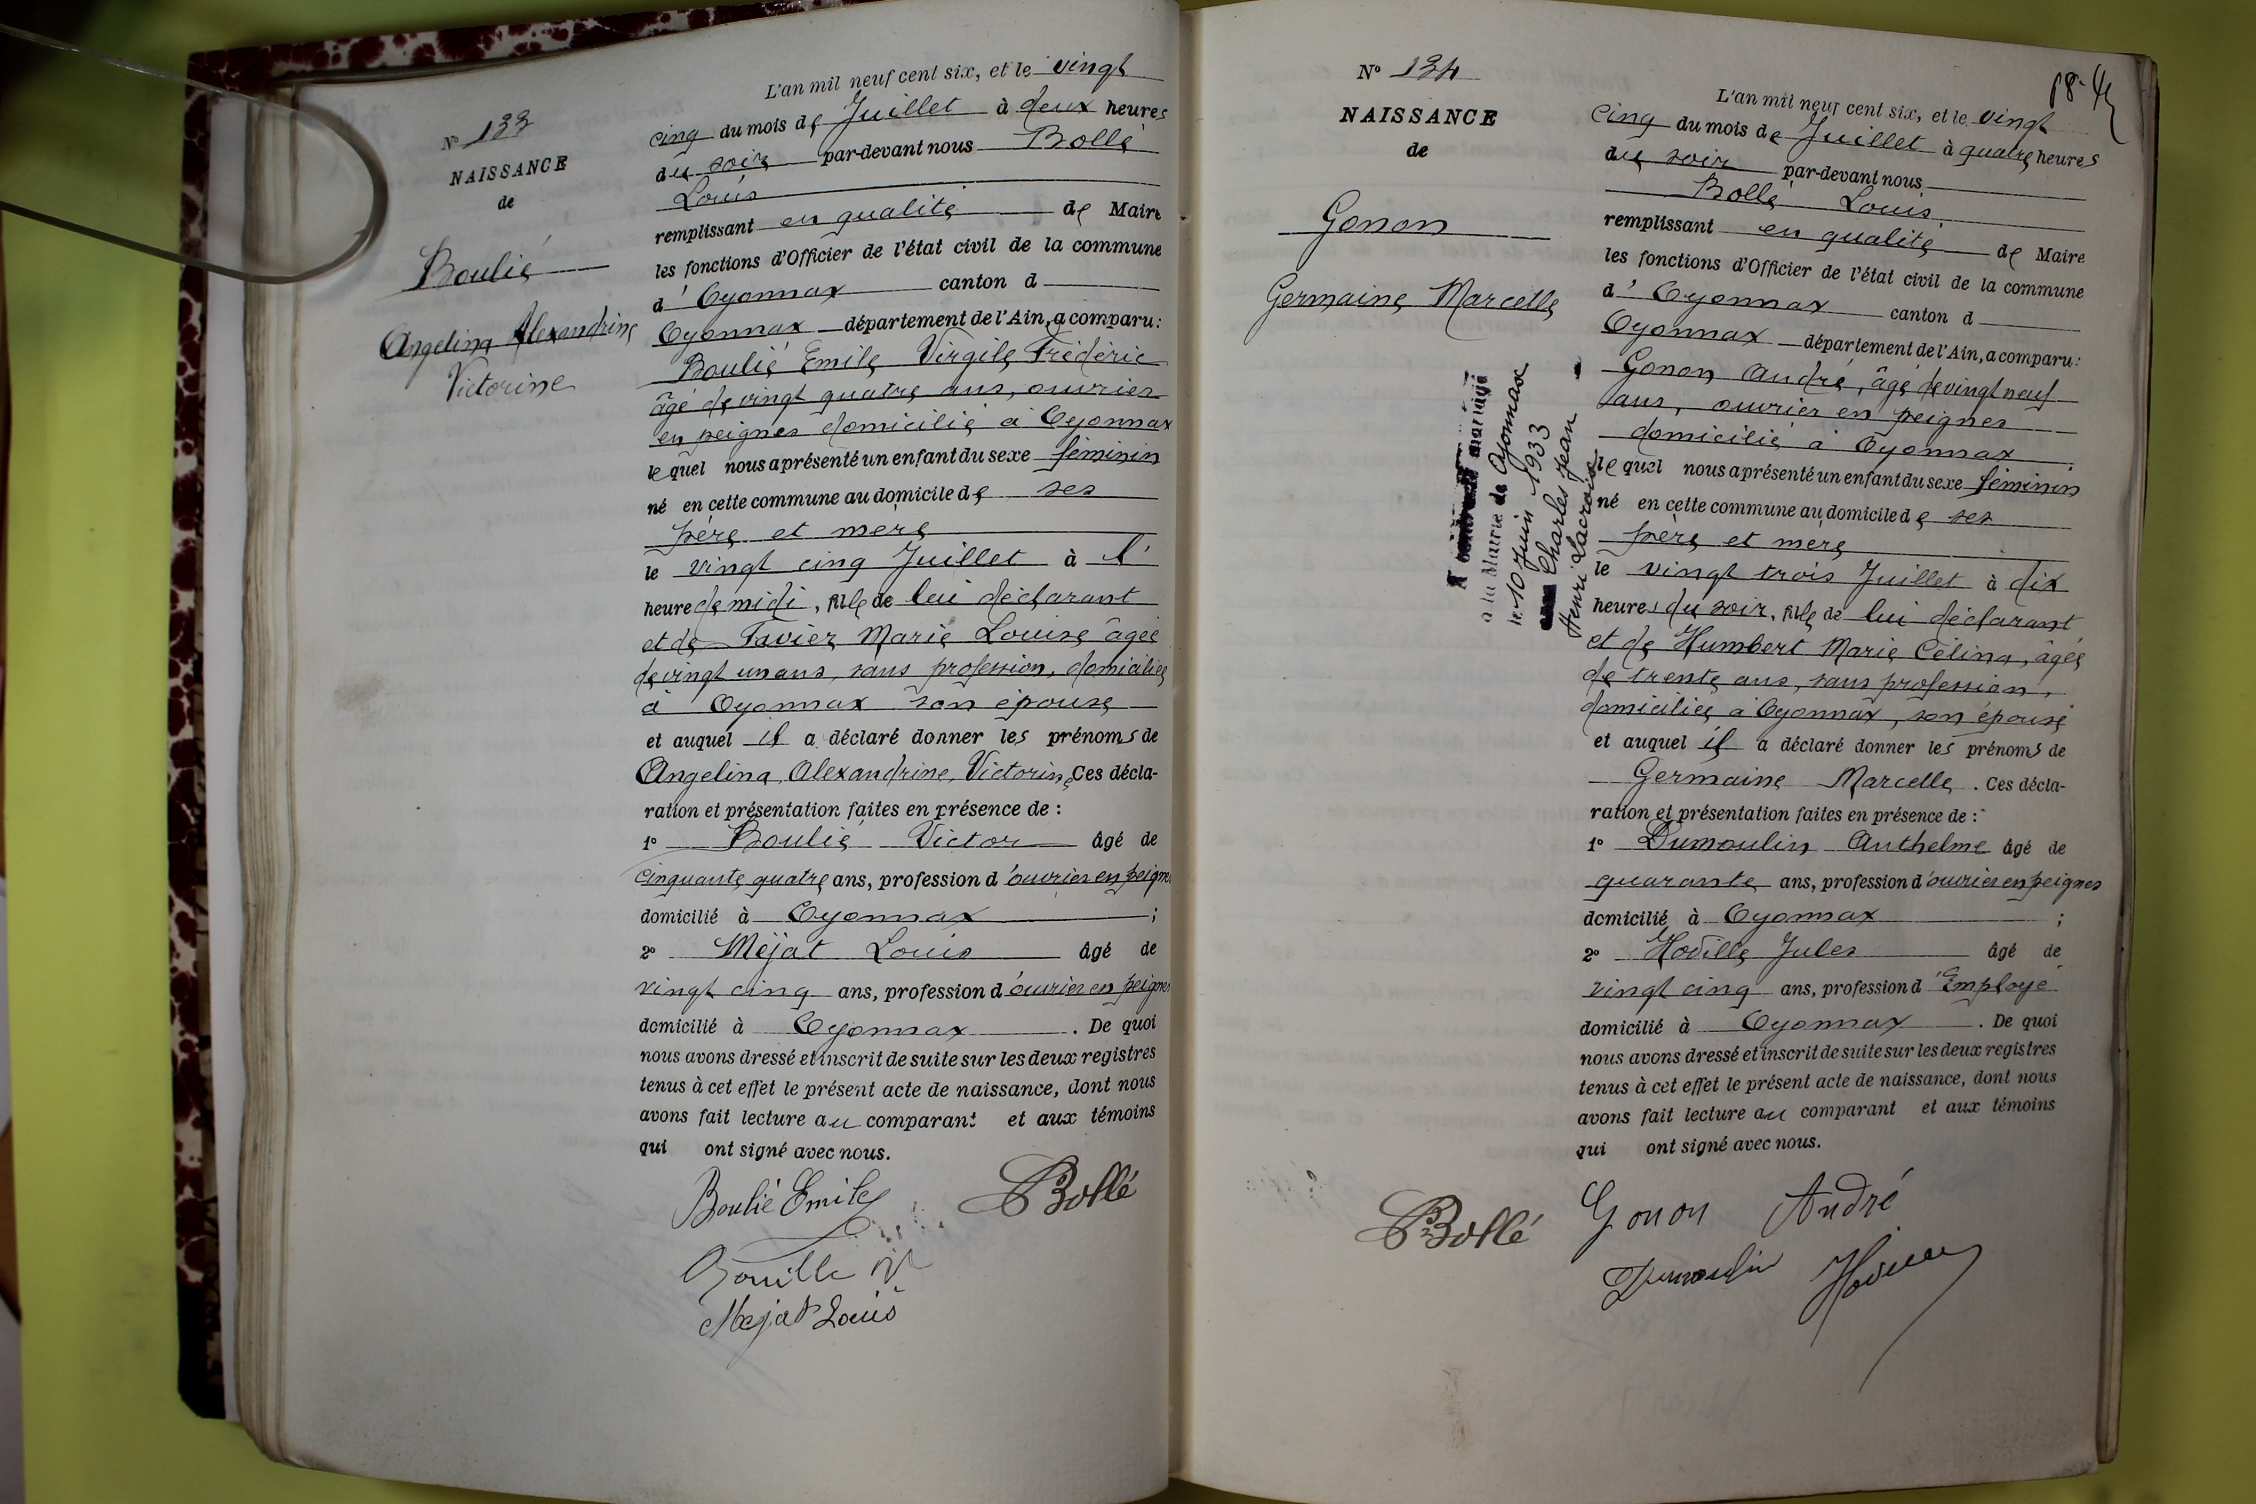 N° 133
NAISSANCE
de
Boulié
Angelina Alexandrine
Victorine
L'an mil neuf cent six, et le vingt
cinq du mois de Juillet à deux heures
du soir par-devant nous Bollé
Louis
remplissant en qualité de Maire
les fonctions d'Officier de l'état civil de la commune
d' Oyonnax canton d
Oyonnax département de l'Ain, a comparu:
Boulié Emile Virgile Frédéric
âgé de vingt quatre ans, ouvrier
en peignes domicilié à Oyonnax
lequel nous a présenté un enfant du sexe féminin
né en cette commune au domicile de ses
père et mère
le vingt cinq Juillet à l'
heure de midi, fille de lui déclarant
et de Favier Marie Louise âgée
de vingt un ans, sans profession, domiciliée
à Oyonnax son épouse
et auquel il a déclaré donner les prénoms de
Angelina Alexandrine Victorine Ces décla-
ration et présentation faites en présence de :
1° Boulié Victor âgé de
cinquante quatre ans, profession d'ouvrier en peignes
domicilié à Oyonnax ;
2° Méjat Louis âgé de
vingt cinq ans, profession d'ouvrier en peignes
domicilié à Oyonnax . De quoi
nous avons dressé et inscrit de suite sur les deux registres
tenus à cet effet le présent acte de naissance, dont nous
avons fait lecture au comparant et aux témoins
qui ont signé avec nous.
Boulié Emile Bollé
Mejat Louis
68-
N° 134
NAISSANCE
de
Gonon
Germaine Marcelle
mariage
à la Mairie de Oyonnax
le 10 Juin 1933
Charles Jean
Henri Lacroix
L'an mil neuf cent six, et le vingt
cinq du mois de Juillet à quatre heures
du soir par-devant nous
Bollé Louis
remplissant en qualité de Maire
les fonctions d'Officier de l'état civil de la commune
d' Oyonnax canton d
Oyonnax département de l'Ain, a comparu:
Gonon André, âgé de vingt neuf
ans, ouvrier en peignes
domicilié à Oyonnax
lequel nous a présenté un enfant du sexe féminin
né en cette commune au domicile de ses
père et mère
le vingt trois Juillet à dix
heures du soir, fille de lui déclarant
et de Humbert Marie Célina, âgée
de trente ans, sans profession,
domiciliée à Oyonnax, son épouse
et auquel il a déclaré donner les prénoms de
Germaine Marcelle . Ces décla-
ration et présentation faites en présence de :
1° Dumoulin Anthelme âgé de
quarante ans, profession d'ouvrier en peignes
domicilié à Oyonnax ;
2° Hoville Jules âgé de
vingt cinq ans, profession d'Employé
domicilié à Oyonnax . De quoi
nous avons dressé et inscrit de suite sur les deux registres
tenus à cet effet le présent acte de naissance, dont nous
avons fait lecture au comparant et aux témoins
qui ont signé avec nous.
Bollé Gonon André
Dumoulin